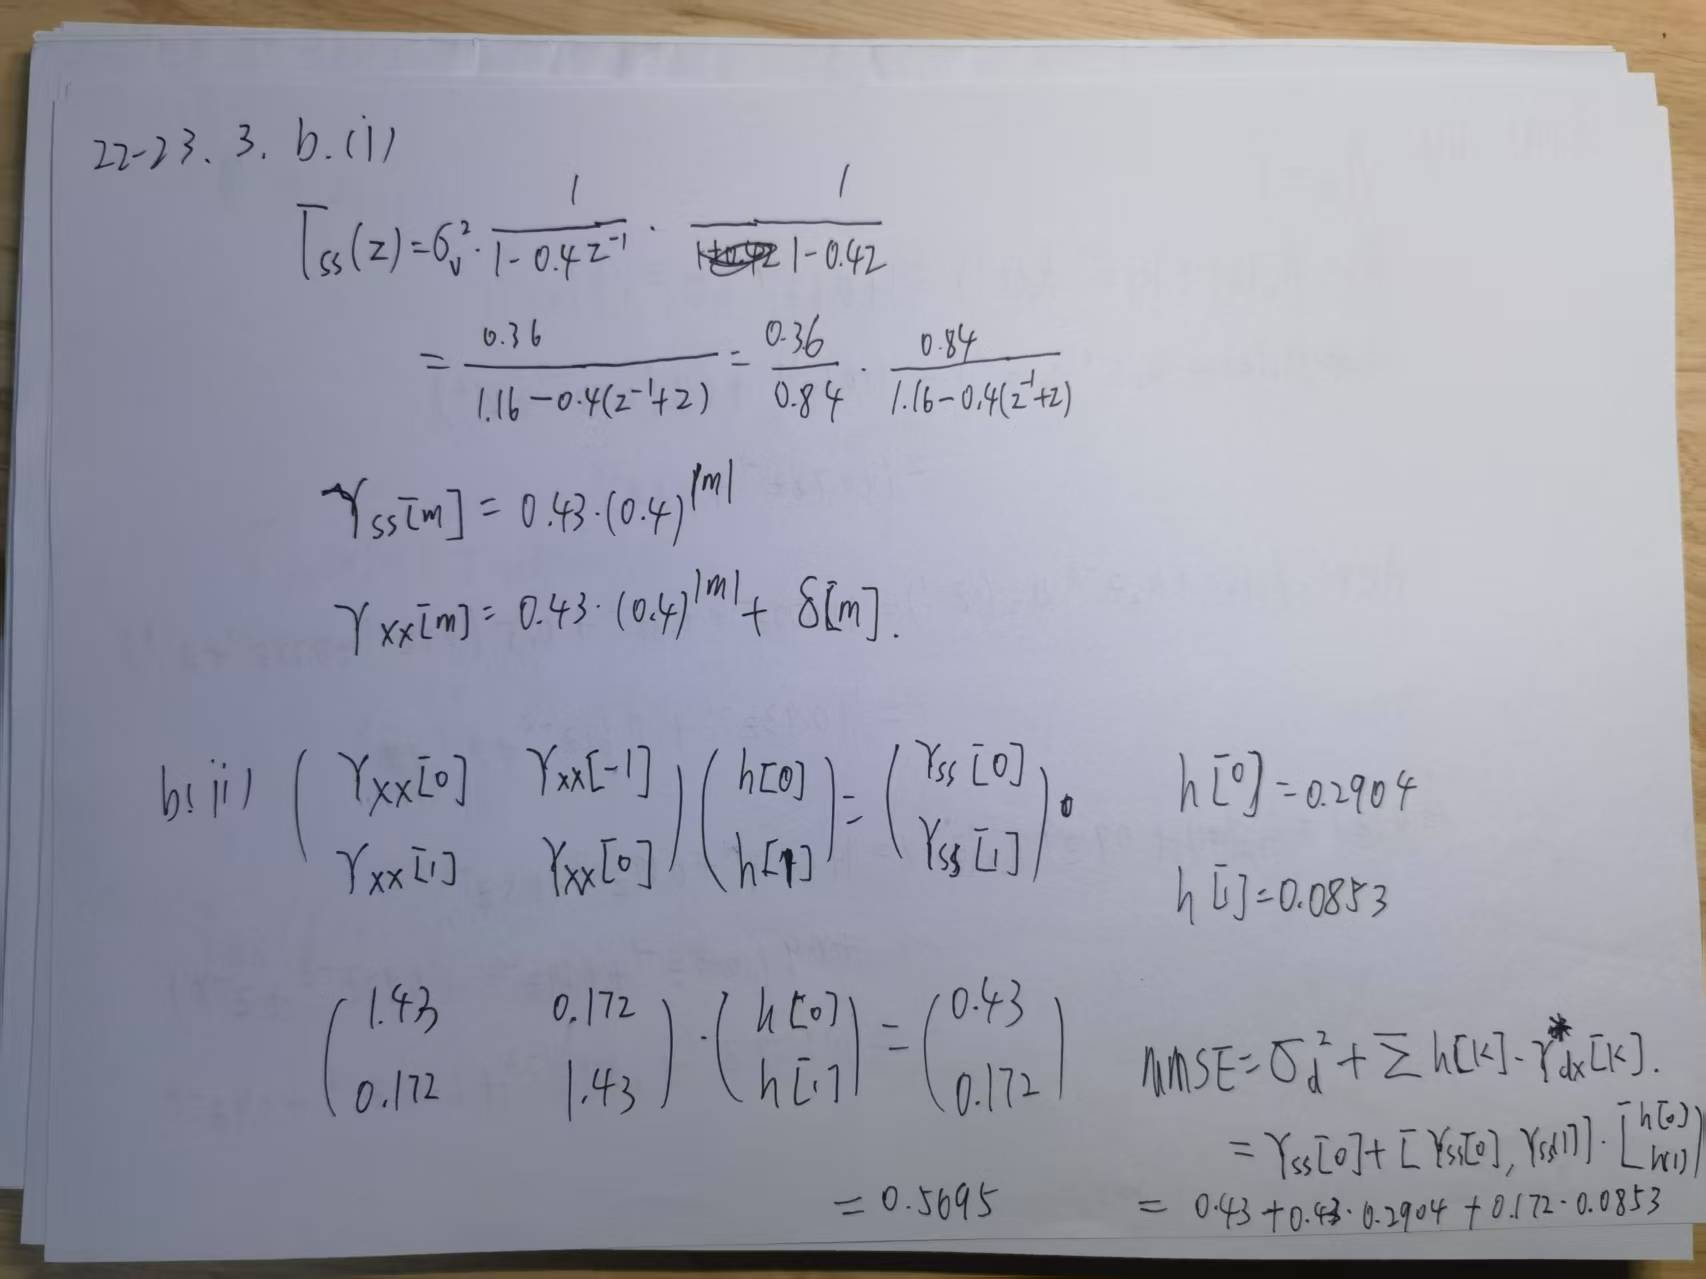 22-23. 3. b.(i)
Γss(z) = σv² · 1/(1-0.4z⁻¹) · 1/(1-0.4z)
= 0.36/(1.16-0.4(z⁻¹+z)) = 0.36/0.84 · 0.84/(1.16-0.4(z⁻¹+z))
γss[m] = 0.43·(0.4)^|m|
γxx[m] = 0.43·(0.4)^|m| + δ[m].
b.(ii) (γxx[0] γxx[-1]; γxx[1] γxx[0]) (h[0]; h[1]) = (γss[0]; γss[1]).
h[0]=0.2904
h[1]=0.0853
(1.43 0.172; 0.172 1.43) · (h[0]; h[1]) = (0.43; 0.172)
MMSE = σd² + Σ h[k]-γ*dx[k].
= γss[0] + [γss[0], γss[1]] · [h[0]; h[1]]
= 0.43+0.43·0.2904+0.172·0.0853
= 0.5695